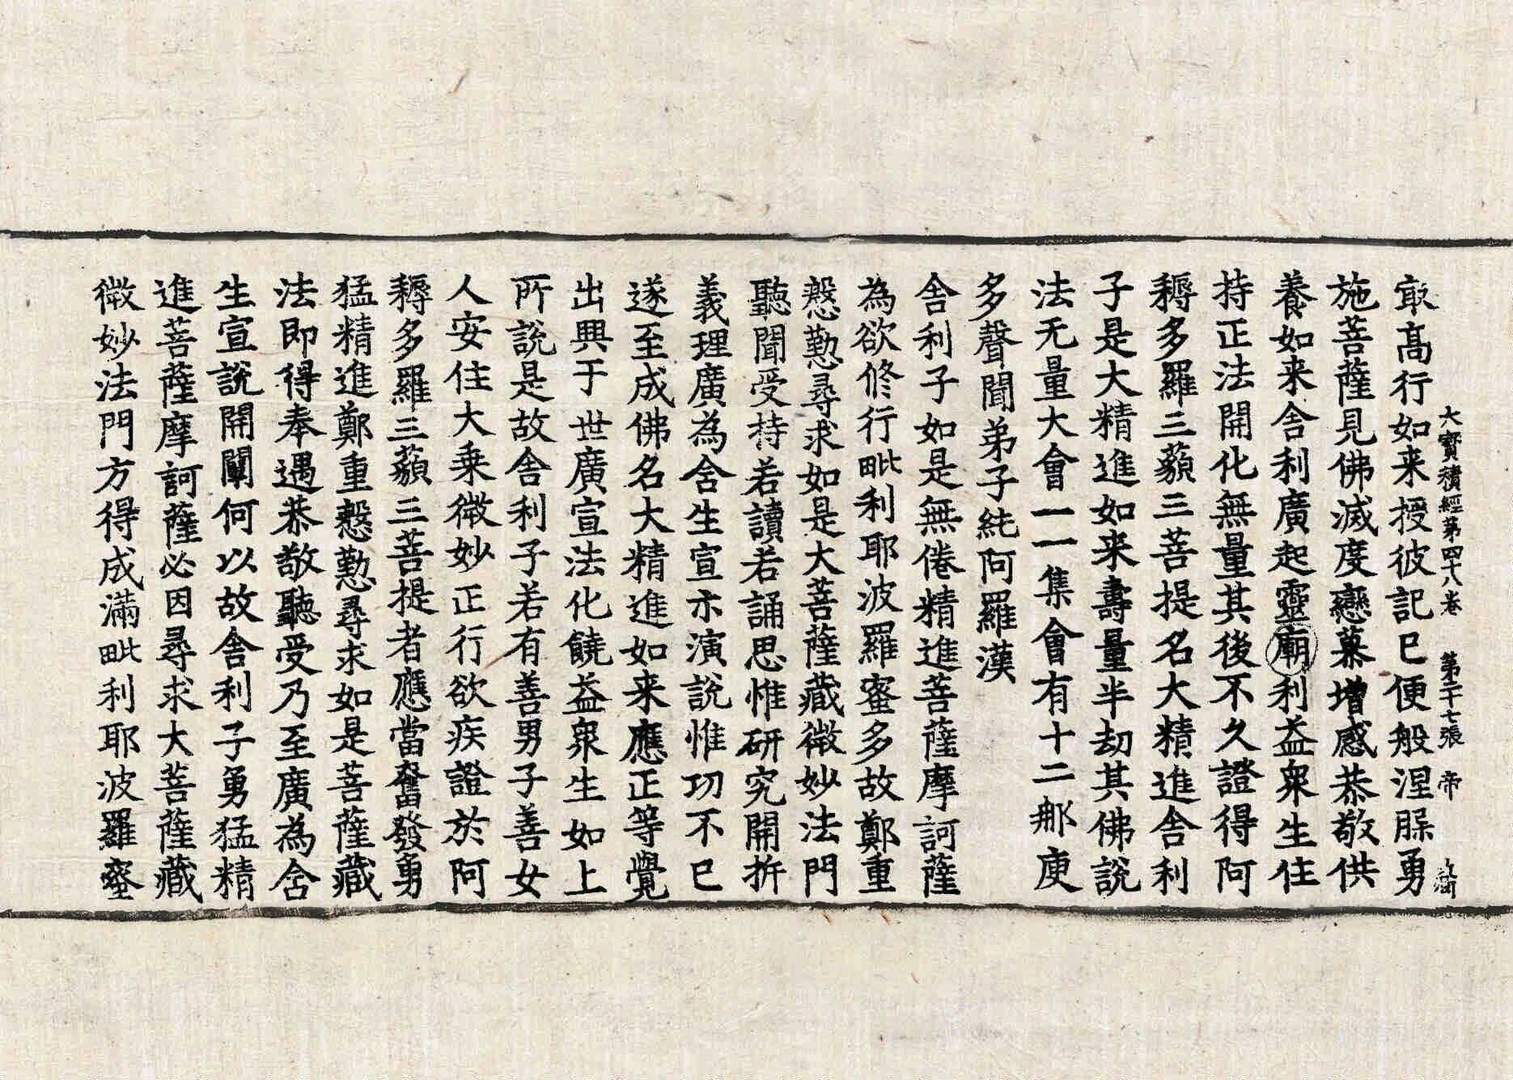 大寶積經第四十八卷　第二十七張　帝
㝡高行如来授彼記已便般涅槃勇
施菩薩見佛滅度戀慕增感恭敬供
養如来舎利廣起靈廟利益衆生住
持正法開化無量其後不久證得阿
耨多羅三藐三菩提名大精進舎利
子是大精進如来壽量半劫其佛說
法无量大會一一集會有十二那庾
多聲聞弟子純阿羅漢
舎利子如是無倦精進菩薩摩訶薩
為欲修行毗利耶波羅蜜多故鄭重
慇懃尋求如是大菩薩藏微妙法門
聽聞受持若讀若誦思惟研究開折
義理廣為舎生宣示演說惟功不已
遂至成佛名大精進如来應正等覺
出興于世廣宣法化饒益衆生如上
所說是故舎利子若有善男子善女
人安住大乗微妙正行欲疾證於阿
耨多羅三藐三菩提者應當奮發勇
猛精進鄭重慇懃尋求如是菩薩藏
法即得奉遇恭敬聽受乃至廣為含
生宣說開闡何以故舎利子勇猛精
進菩薩摩訶薩必因尋求大菩薩藏
微妙法門方得成滿毗利耶波羅蜜